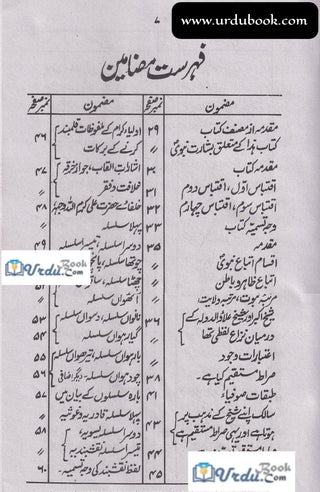 ۷
www.urdubook.com
فہرست مضامین
مضمون نمبر صفحہ مضمون نمبر صفحہ
مقدمہ از مصنف کتاب ۲۹
کتاب ہذا کے متعلق بشارت نبویؐ 〃
مقدمہ کتاب ۳۰
اقتباس اوّل، اقتباس دوم ۳۱
اقتباس سوم، اقتباس چہارم ۳۲
وجہ تسمیہ کتاب ۳۳
مقدمہ ۳۵
اقسام اتباع نبویؐ
اتباع ظاہر و باطن
مرتبہ نبوت، مرتبہ ولایت
شیخ اکبر اور شیخ علاؤ الدولہ کے ۳۶
درمیان نزاع لفظی تھا
اعتبارات وجود 〃
صراط مستقیم کیا ہے۔ ۳۸
طبقات صوفیاء ۴۱
سالک اپنے شیخ کے مذہب پر ۴۳
ہوتا ہے اور یہی صراط مستقیم
۴۵
اولیاء کرام کے ملفوظات قلمبند ۴۶
کرنے کے برکات
انتشارات القاب، جواز خرقہ ۴۷
خلافت و فقر 〃
خلفائے حضرت علی کرم اللہ وجہہ ۴۸
پہلا سلسلہ 〃
دوسرا سلسلہ، تیسرا سلسلہ ۴۹
چوتھا سلسلہ
چھٹا سلسلہ
آٹھواں سلسلہ
نواں سلسلہ، دسواں سلسلہ ۵۳
گیارہواں سلسلہ ۵۴
بارہواں سلسلہ، تیرہواں سلسلہ ۵۵
چودہواں سلسلہ، دیگر اضافی ۵۶
بارہ سلسلوں کے بیان میں ۵۷
پہلا سلسلہ قادریہ و غوثیہ 〃
دوسرا سلسلہ یسویہ ۵۸
تیسرا سلسلہ نقشبندیہ 〃
لفظ نقشبند کی وجہ تسمیہ۔ ۶۰
Urdu Book .com
Urdu Book .com